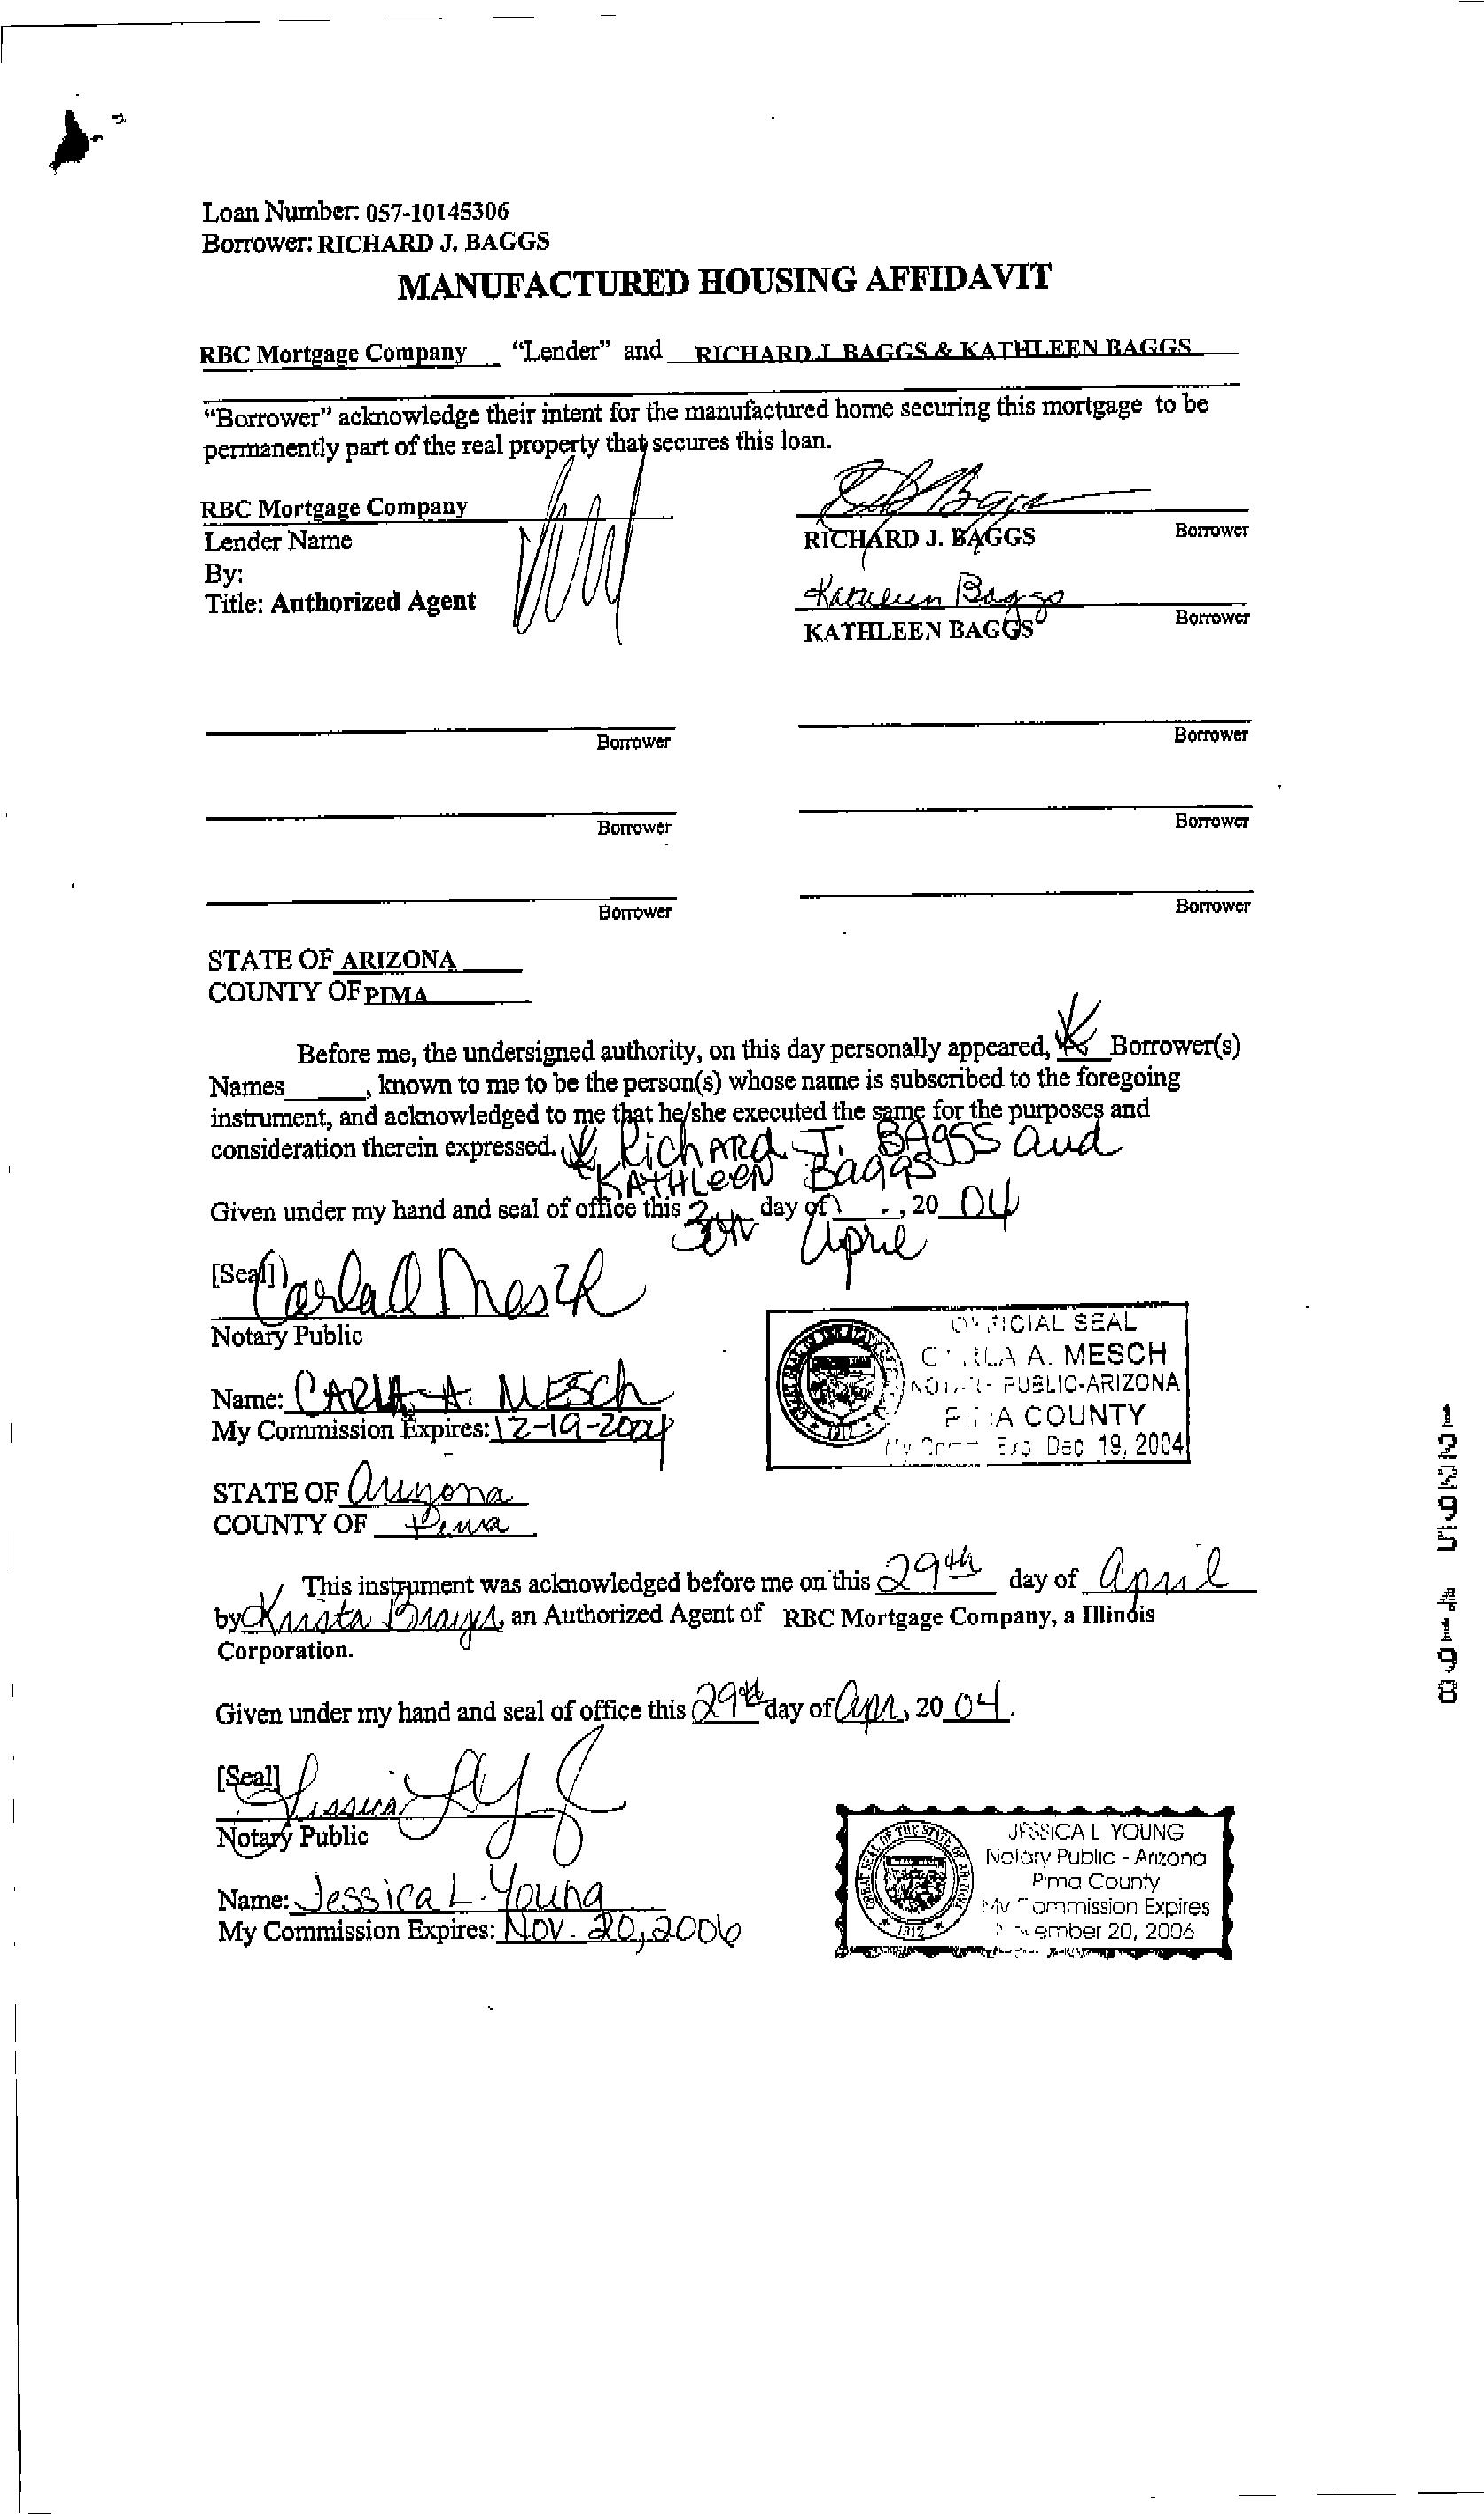 Loan Number: 057-10145306
Borrower: RICHARD J. BAGGS
MANUFACTURED HOUSING AFFIDAVIT
RBC Mortgage Company "Lender" and RICHARD J BAGGS & KATHLEEN BAGGS
"Borrower" acknowledge their intent for the manufactured home securing this mortgage to be
permanently part of the real property that secures this loan.
RBC Mortgage Company
Lender Name
By:
Title: Authorized Agent
RICHARD J. BAGGS Borrower
Kathleen Baggs
KATHLEEN BAGGS Borrower
Borrower Borrower
Borrower Borrower
Borrower Borrower
STATE OF ARIZONA
COUNTY OF PIMA
Before me, the undersigned authority, on this day personally appeared, Borrower(s)
Names , known to me to be the person(s) whose name is subscribed to the foregoing
instrument, and acknowledged to me that he/she executed the same for the purposes and
consideration therein expressed. Richard J. Baggs and
Kathleen Baggs
Given under my hand and seal of office this 30th day of April, 20 04
[Seal] Carla A Mesch
Notary Public
Name: CARLA A. MESch
My Commission Expires: 12-19-2004
OFFICIAL SEAL
CARLA A. MESCH
NOTARY PUBLIC-ARIZONA
PIMA COUNTY
My Comm Exp Dec 19, 2004
STATE OF Arizona
COUNTY OF Pima
This instrument was acknowledged before me on this 29th day of April
by Krista, an Authorized Agent of RBC Mortgage Company, a Illinois
Corporation.
Given under my hand and seal of office this 29th day of Apr, 20 04.
[Seal]
Notary Public
Name: Jessica L. Young
My Commission Expires: Nov. 20, 2006
JESSICA L YOUNG
Notary Public - Arizona
Pima County
My Commission Expires
November 20, 2006
GREAT SEAL OF THE STATE OF ARIZONA
1912